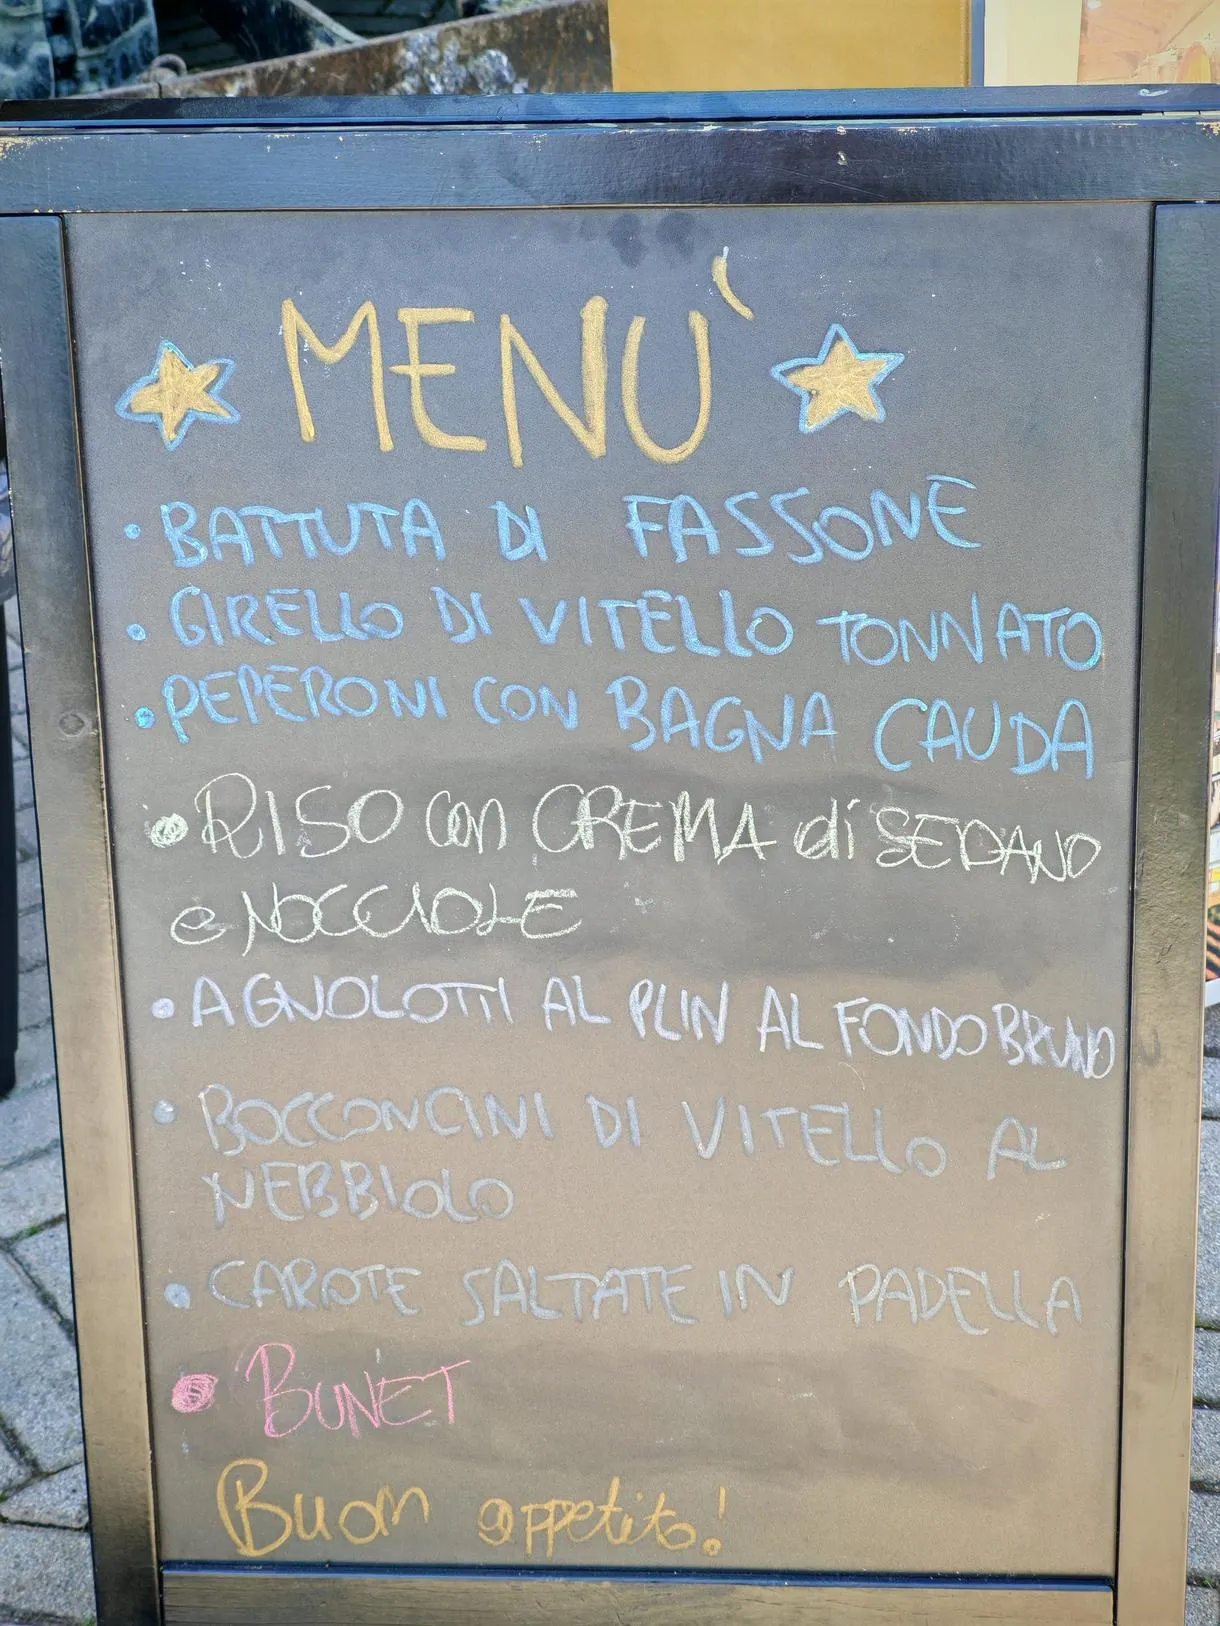 MENÙ
• BATTUTA DI FASSONE
• GIRELLO DI VITELLO TONNATO
• PEPERONI CON BAGNA CAUDA
• RISO con CREMA di SEDANO
e NOCCIOLE
• AGNOLOTTI AL PLIN AL FONDO BRUNO
• BOCCONCINI DI VITELLO AL
NEBBIOLO
• CAROTE SALTATE IN PADELLA
• BUNET
Buon appetito!